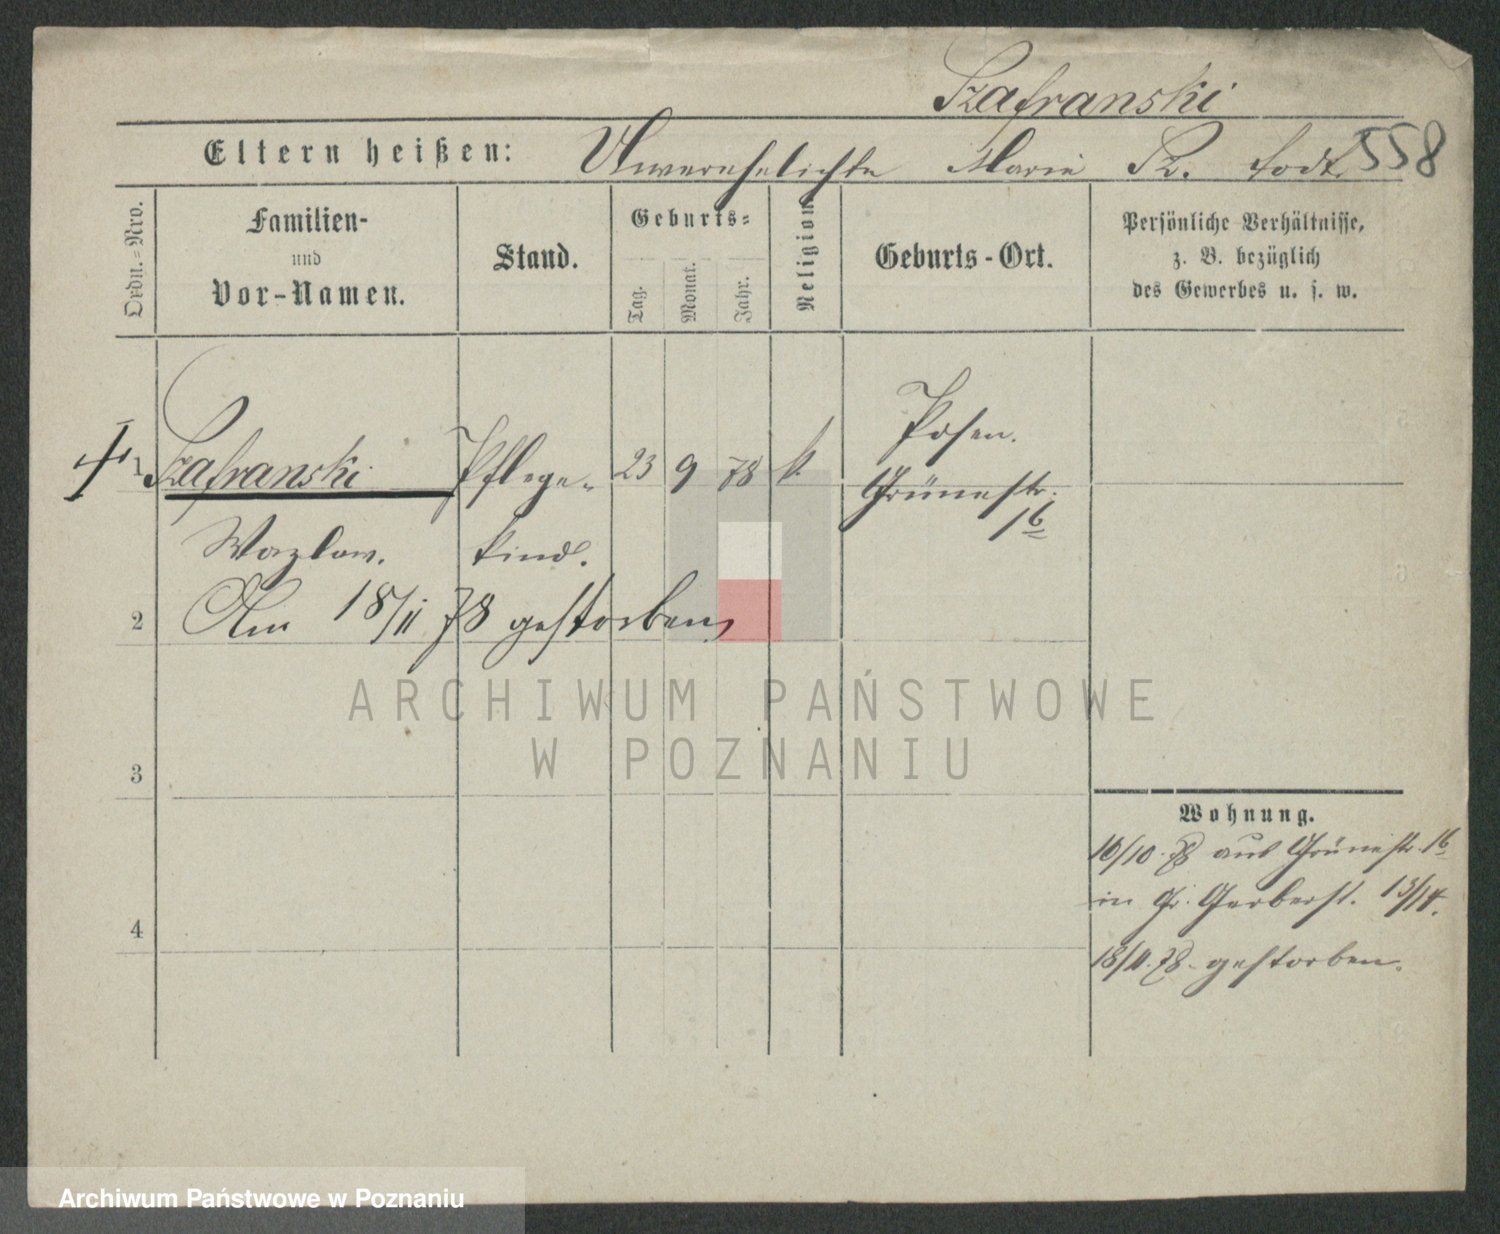 Szafranski
558
Eltern heißen: Unverehelichte Marie Sz. todt.
Ordn.=Nro.
Familien-
und
Vor-Namen.
Stand.
Geburts=
Tag.
Monat.
Jahr.
Religion
Geburts-Ort.
Persönliche Verhältnisse,
z. B. bezüglich
des Gewerbes u. s. w.
1 Szafranski Pflege- 23 9 78 k. Posen.
Grünestr.
16
Wazlaw. kind.
2 Am 18/11 78 gestorben
3
4
Wohnung.
10/10. 78 aus Grünestr. 16
in Gr. Gerberst. 13/14.
18/11. 78. gestorben.
ARCHIWUM PAŃSTWOWE
W POZNANIU
Archiwum Państwowe w Poznaniu